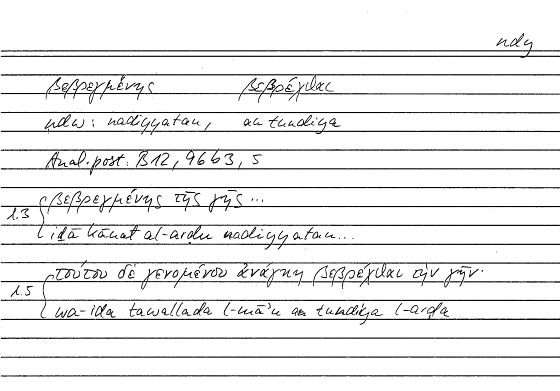 ndy
βεβρεγμένης βεβρέχθαι
ndw: nadiyyatan, an tundiya
Anal. post. B12, 96b3, 5
l.3 βεβρεγμένης τῆς γῆς ...
idā kānat al-arḍu nadiyyatan...
l.5 τούτου δὲ γενομένου ἀνάγκη βεβρέχθαι τὴν γῆν·
wa-ida tawallada l-mā'u an tundiya l-arḍa